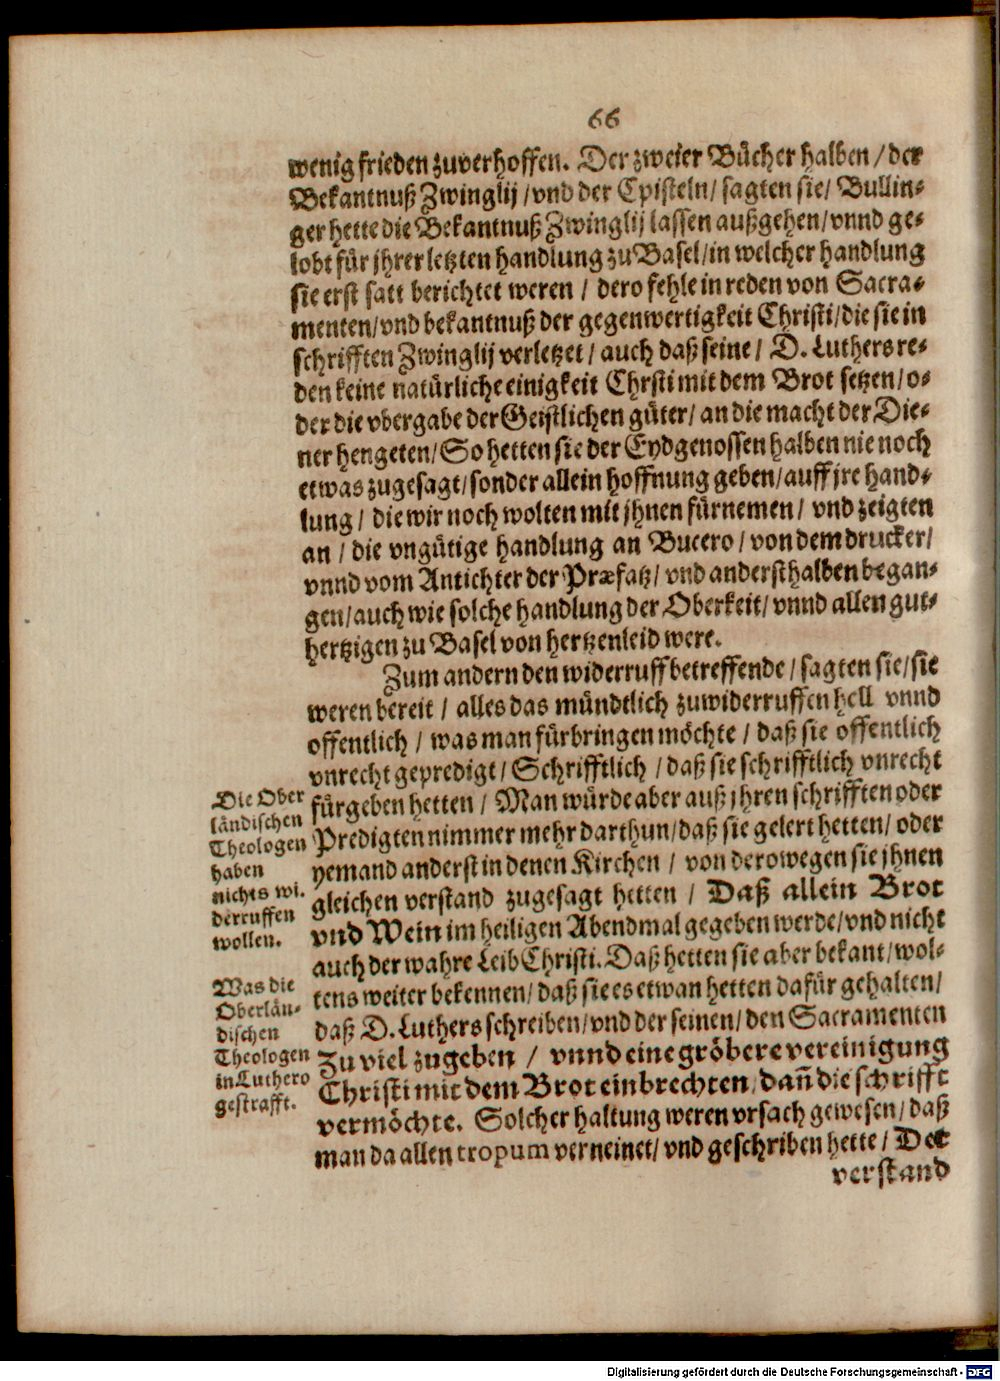 66
wenig frieden zuverhoffen. Der zweier Bücher halben / der
Bekantnuß Zwinglij / vnd der Episteln / sagten sie / Bullin⸗
ger hette die Bekantnuß Zwinglij lassen außgehen / vnnd ge⸗
lobt für jhrer letzten handlung zu Basel / in welcher handlung
sie erst satt berichtet weren / dero fehle in reden von Sacra⸗
menten / vnd bekantnuß der gegenwertigkeit Christi / die sie in
schrifften Zwinglij verletzet / auch daß seine / D. Luthers re⸗
den keine natürliche einigkeit Chrsti mit dem Brot setzen / o⸗
der die vbergabe der Geistlichen güter / an die macht der Die⸗
ner hengeten / So hetten sie der Eydgenossen halben nie noch
etwas zugesagt / sonder allein hoffnung geben / auff jre hand⸗
lung / die wir noch wolten mit jhnen fürnemen / vnd zeigten
an / die vngütige handlung an Bucero / von dem drucker /
vnnd vom Antichter der Præfatz / vnd andersthalben began⸗
gen / auch wie solche handlung der Oberkeit / vnnd allen gut⸗
hertzigen zu Basel von hertzenleid were.
Zum andern den widerruff betreffende / sagten sie / sie
weren bereit / alles das mündtlich zuwiderruffen hell vnnd
offentlich / was man fürbringen möchte / daß sie offentlich
vnrecht gepredigt / Schrifftlich / daß sie schrifftlich vnrecht
fürgeben hetten / Man würde aber auß jhren schrifften oder
Predigten nimmer mehr darthun / daß sie gelert hetten / oder
yemand anderst in denen Kirchen / von derowegen sie jhnen
gleichen verstand zugesagt hetten / Daß allein Brot
vnd Wein im heiligen Abendmal gegeben werde / vnd nicht
auch der wahre Leib Christi. Daß hetten sie aber bekant / wol⸗
tens weiter bekennen / daß sie es etwan hetten dafür gehalten /
daß D. Luthers schreiben / vnd der seinen / den Sacramenten
zu viel zugeben / vnnd eine gröbere vereinigung
Christi mit dem Brot einbrechten / dañ die schrifft
vermöchte. Solcher haltung weren vrsach gewesen / daß
man da allen tropum verneinet / vnd geschriben hette / Der
verstand
Die Ober
ländischen
Theologen
haben
nichts wi.
derruffen
wollen.
Was die
Oberlän⸗
dischen
Theologen
in Luthero
gestrafft.
Digitalisierung gefördert durch die Deutsche Forschungsgemeinschaft - DFG